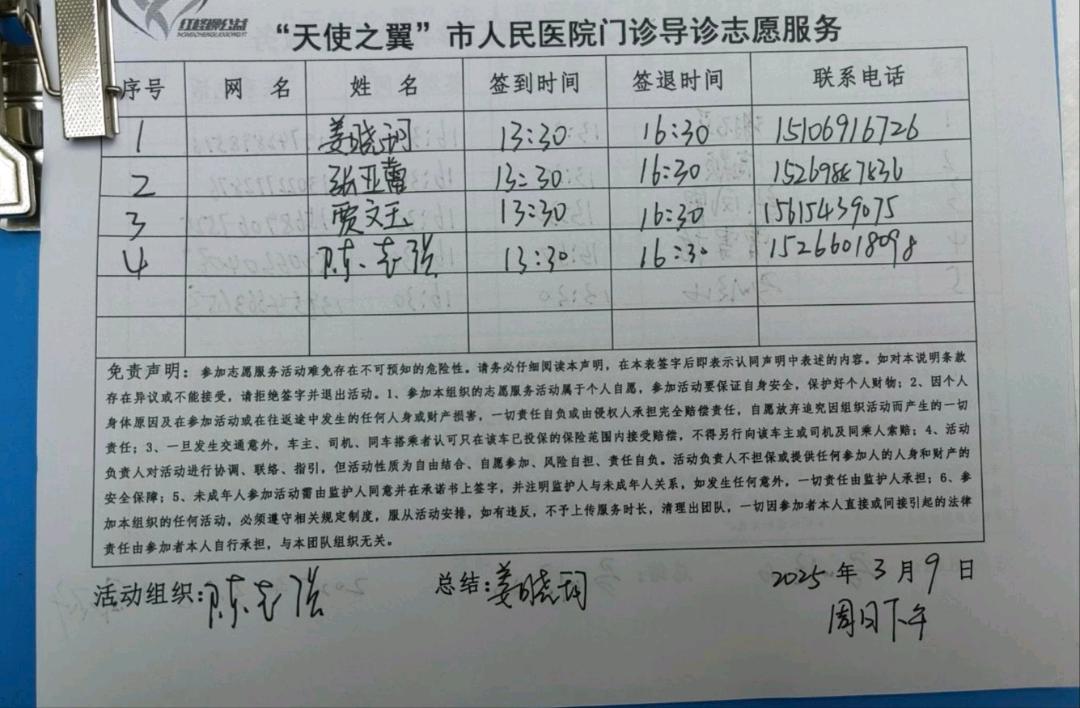 红橙黄公益
HONGCHENGHUANGGONGYI
“天使之翼”市人民医院门诊导诊志愿服务
序号 网 名 姓 名 签到时间 签退时间 联系电话
1 姜晓玥 13:30 16:30 15106916726
2 张亚蕾 13:30 16:30
3 贾文玉 13:30 16:30 15615439075
4 陈志强 13:30 16:30 15266018098
免责声明：参加志愿服务活动难免存在不可预知的危险性。请务必仔细阅读本声明，在本表签字后即表示认同声明中表述的内容。如对本说明条款
存在异议或不能接受，请拒绝签字并退出活动。1、参加本组织的志愿服务活动属于个人自愿，参加活动要保证自身安全，保护好个人财物；2、因个人
身体原因及在参加活动或在往返途中发生的任何人身或财产损害，一切责任自负或由侵权人承担完全赔偿责任，自愿放弃追究因组织活动而产生的一切
责任；3、一旦发生交通意外，车主、司机、同车搭乘者认可只在该车已投保的保险范围内接受赔偿，不得另行向该车主或司机及同乘人索赔；4、活动
负责人对活动进行协调、联络、指引，但活动性质为自由结合、自愿参加、风险自担、责任自负。活动负责人不担保或提供任何参加人的人身和财产的
安全保障；5、未成年人参加活动需由监护人同意并在承诺书上签字，并注明监护人与未成年人关系，如发生任何意外，一切责任由监护人承担；6、参
加本组织的任何活动，必须遵守相关规定制度，服从活动安排，如有违反，不予上传服务时长，清理出团队，一切因参加者本人直接或间接引起的法律
责任由参加者本人自行承担，与本团队组织无关。
活动组织：陈志强 总结：姜晓玥 2025年3月9日
周日下午